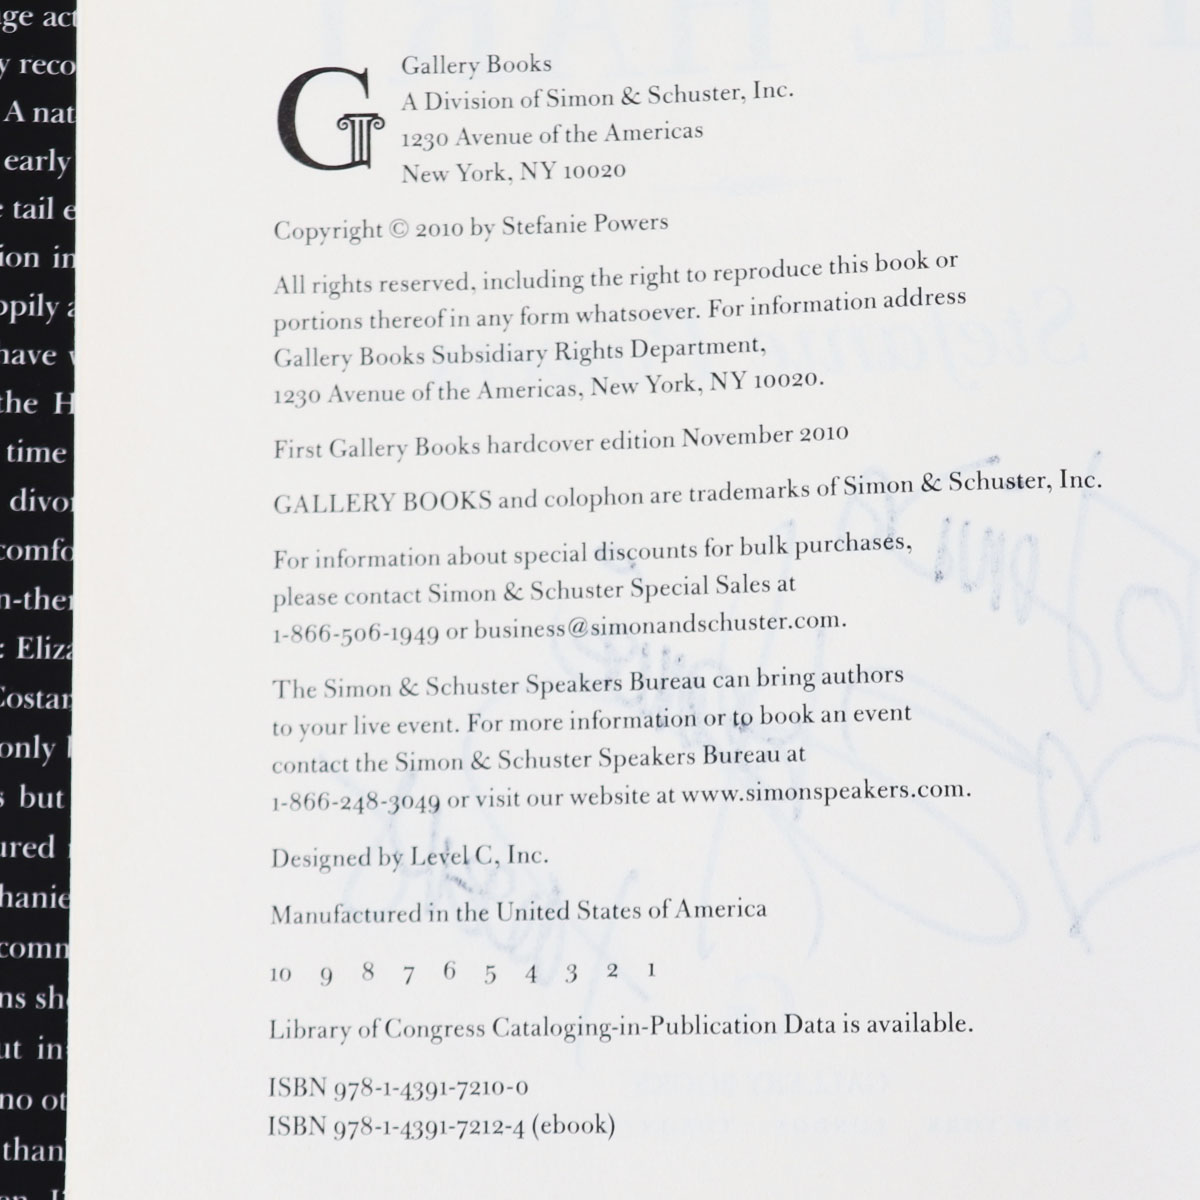 Gallery Books
A Division of Simon & Schuster, Inc.
1230 Avenue of the Americas
New York, NY 10020
Copyright © 2010 by Stefanie Powers
All rights reserved, including the right to reproduce this book or
portions thereof in any form whatsoever. For information address
Gallery Books Subsidiary Rights Department,
1230 Avenue of the Americas, New York, NY 10020.
First Gallery Books hardcover edition November 2010
GALLERY BOOKS and colophon are trademarks of Simon & Schuster, Inc.
For information about special discounts for bulk purchases,
please contact Simon & Schuster Special Sales at
1-866-506-1949 or business@simonandschuster.com.
The Simon & Schuster Speakers Bureau can bring authors
to your live event. For more information or to book an event
contact the Simon & Schuster Speakers Bureau at
1-866-248-3049 or visit our website at www.simonspeakers.com.
Designed by Level C, Inc.
Manufactured in the United States of America
10 9 8 7 6 5 4 3 2 1
Library of Congress Cataloging-in-Publication Data is available.
ISBN 978-1-4391-7210-0
ISBN 978-1-4391-7212-4 (ebook)